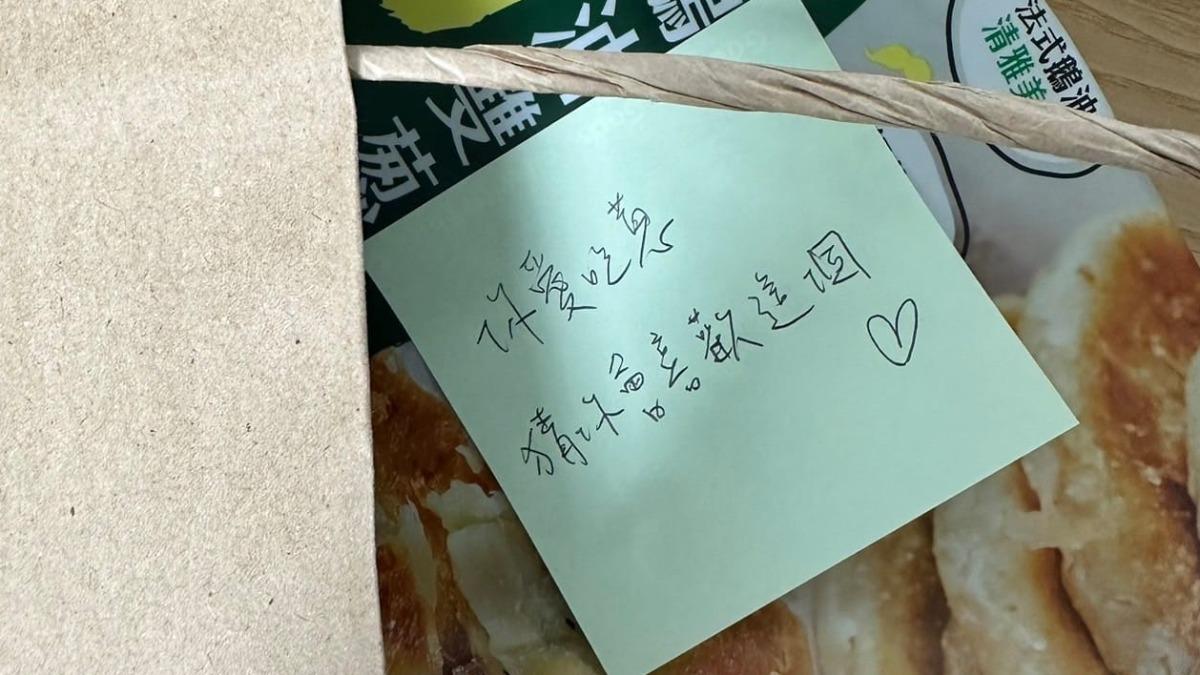 鵝油雙蔥
法式鵝油
清雅美
你愛吃蔥
猜你會喜歡這個